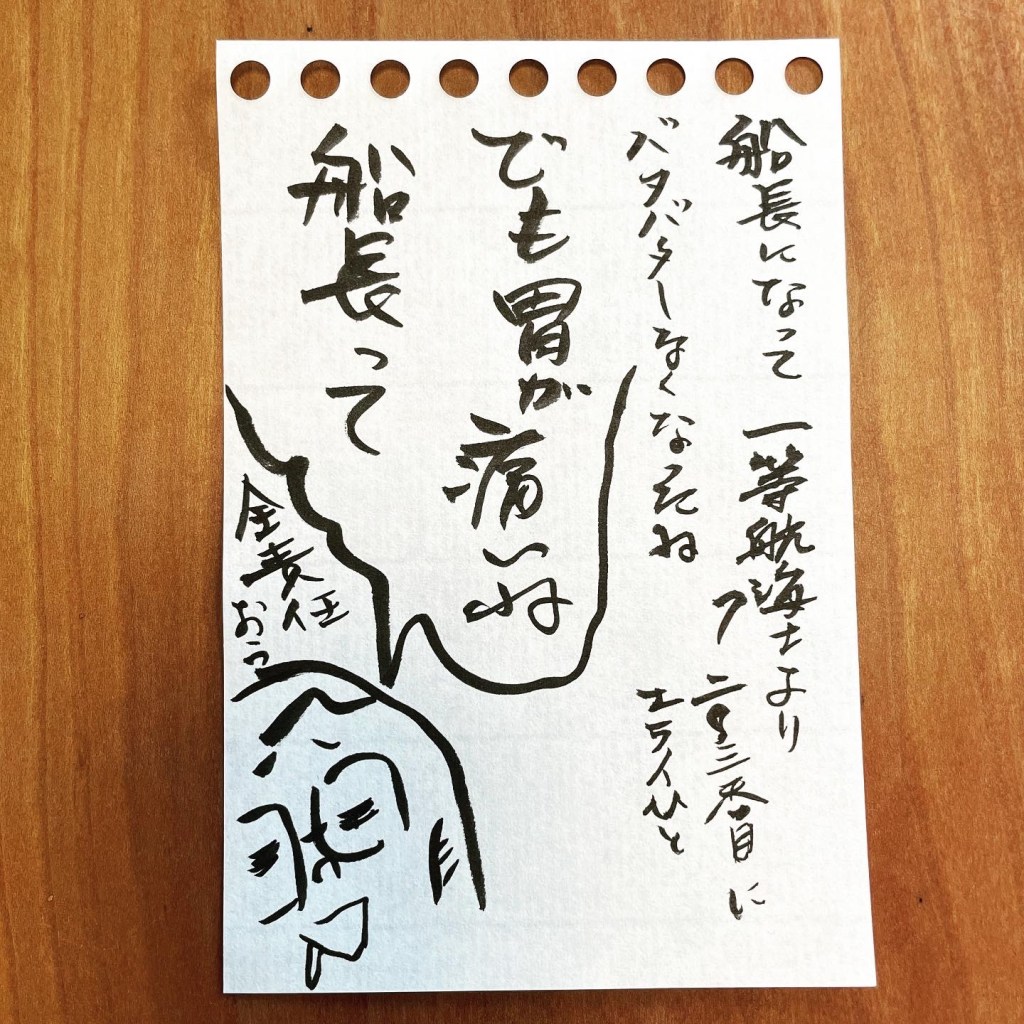 船長になって 一等航海士より
三番目に
エライひと
バタバタしなくなったね
でも胃が痛いね
船長って
全責任
おう